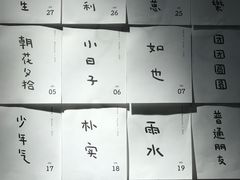 生
利
27
26
25
朝花夕拾
05
小日子
06
如也
07
团团圆圆
少年气
17
朴实
18
雨水
19
普通朋友